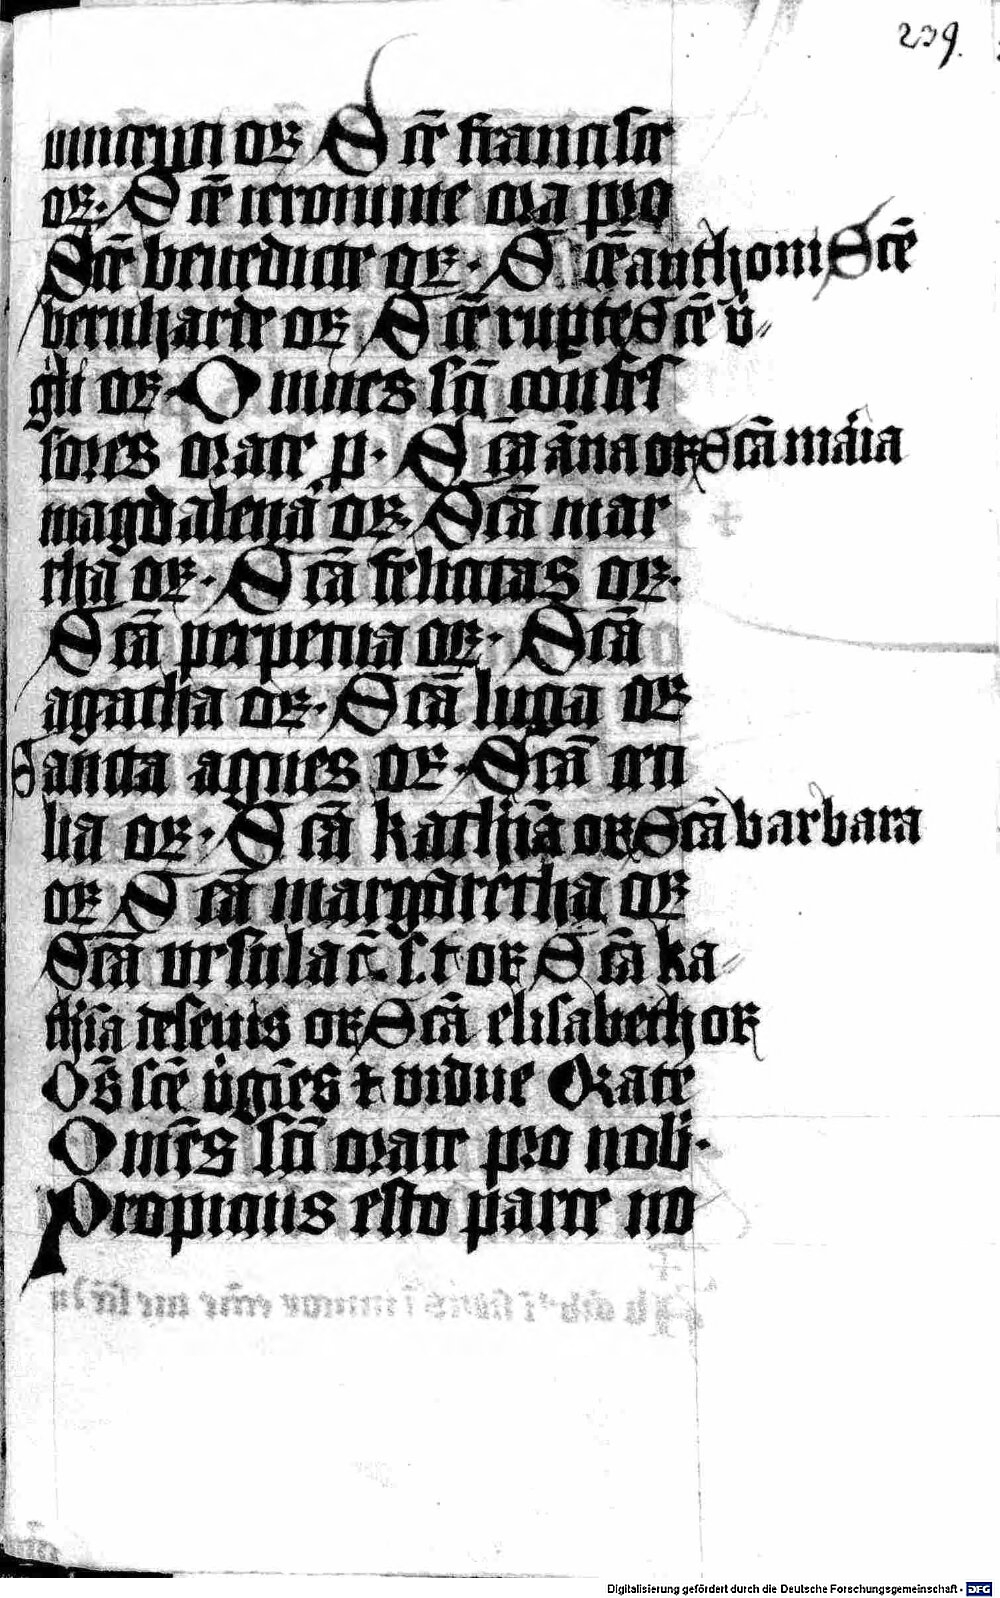 239.
or Sctē francisce
or. Sctē ieronime ora pro
Sctē benedicte or. Sctē anthoni Sctē
bernharde or Sctē ruperte Sctē v̄
gili or. Omnes sctī confes
sores orate p. Sctā āna or Sctā maria
magdalena or Sctā mar
tha or. Sctā felicitas or.
Sctā perpetua or. Sctā
agatha or. Sctā lucia or
Sancta agnes or. Sctā ceci
lia or. Sctā kathīa or Sctā barbara
or Sctā margaretha or
Sctā ursula c̄ s. t or Sctā ka
thīa desenis or Sctā elisabeth or
Oēs sctē v̄gīes et vidue Orate
Omēs sctī orate pro nob.
Propicius esto parce no
Digitalisierung gefördert durch die Deutsche Forschungsgemeinschaft - DFG